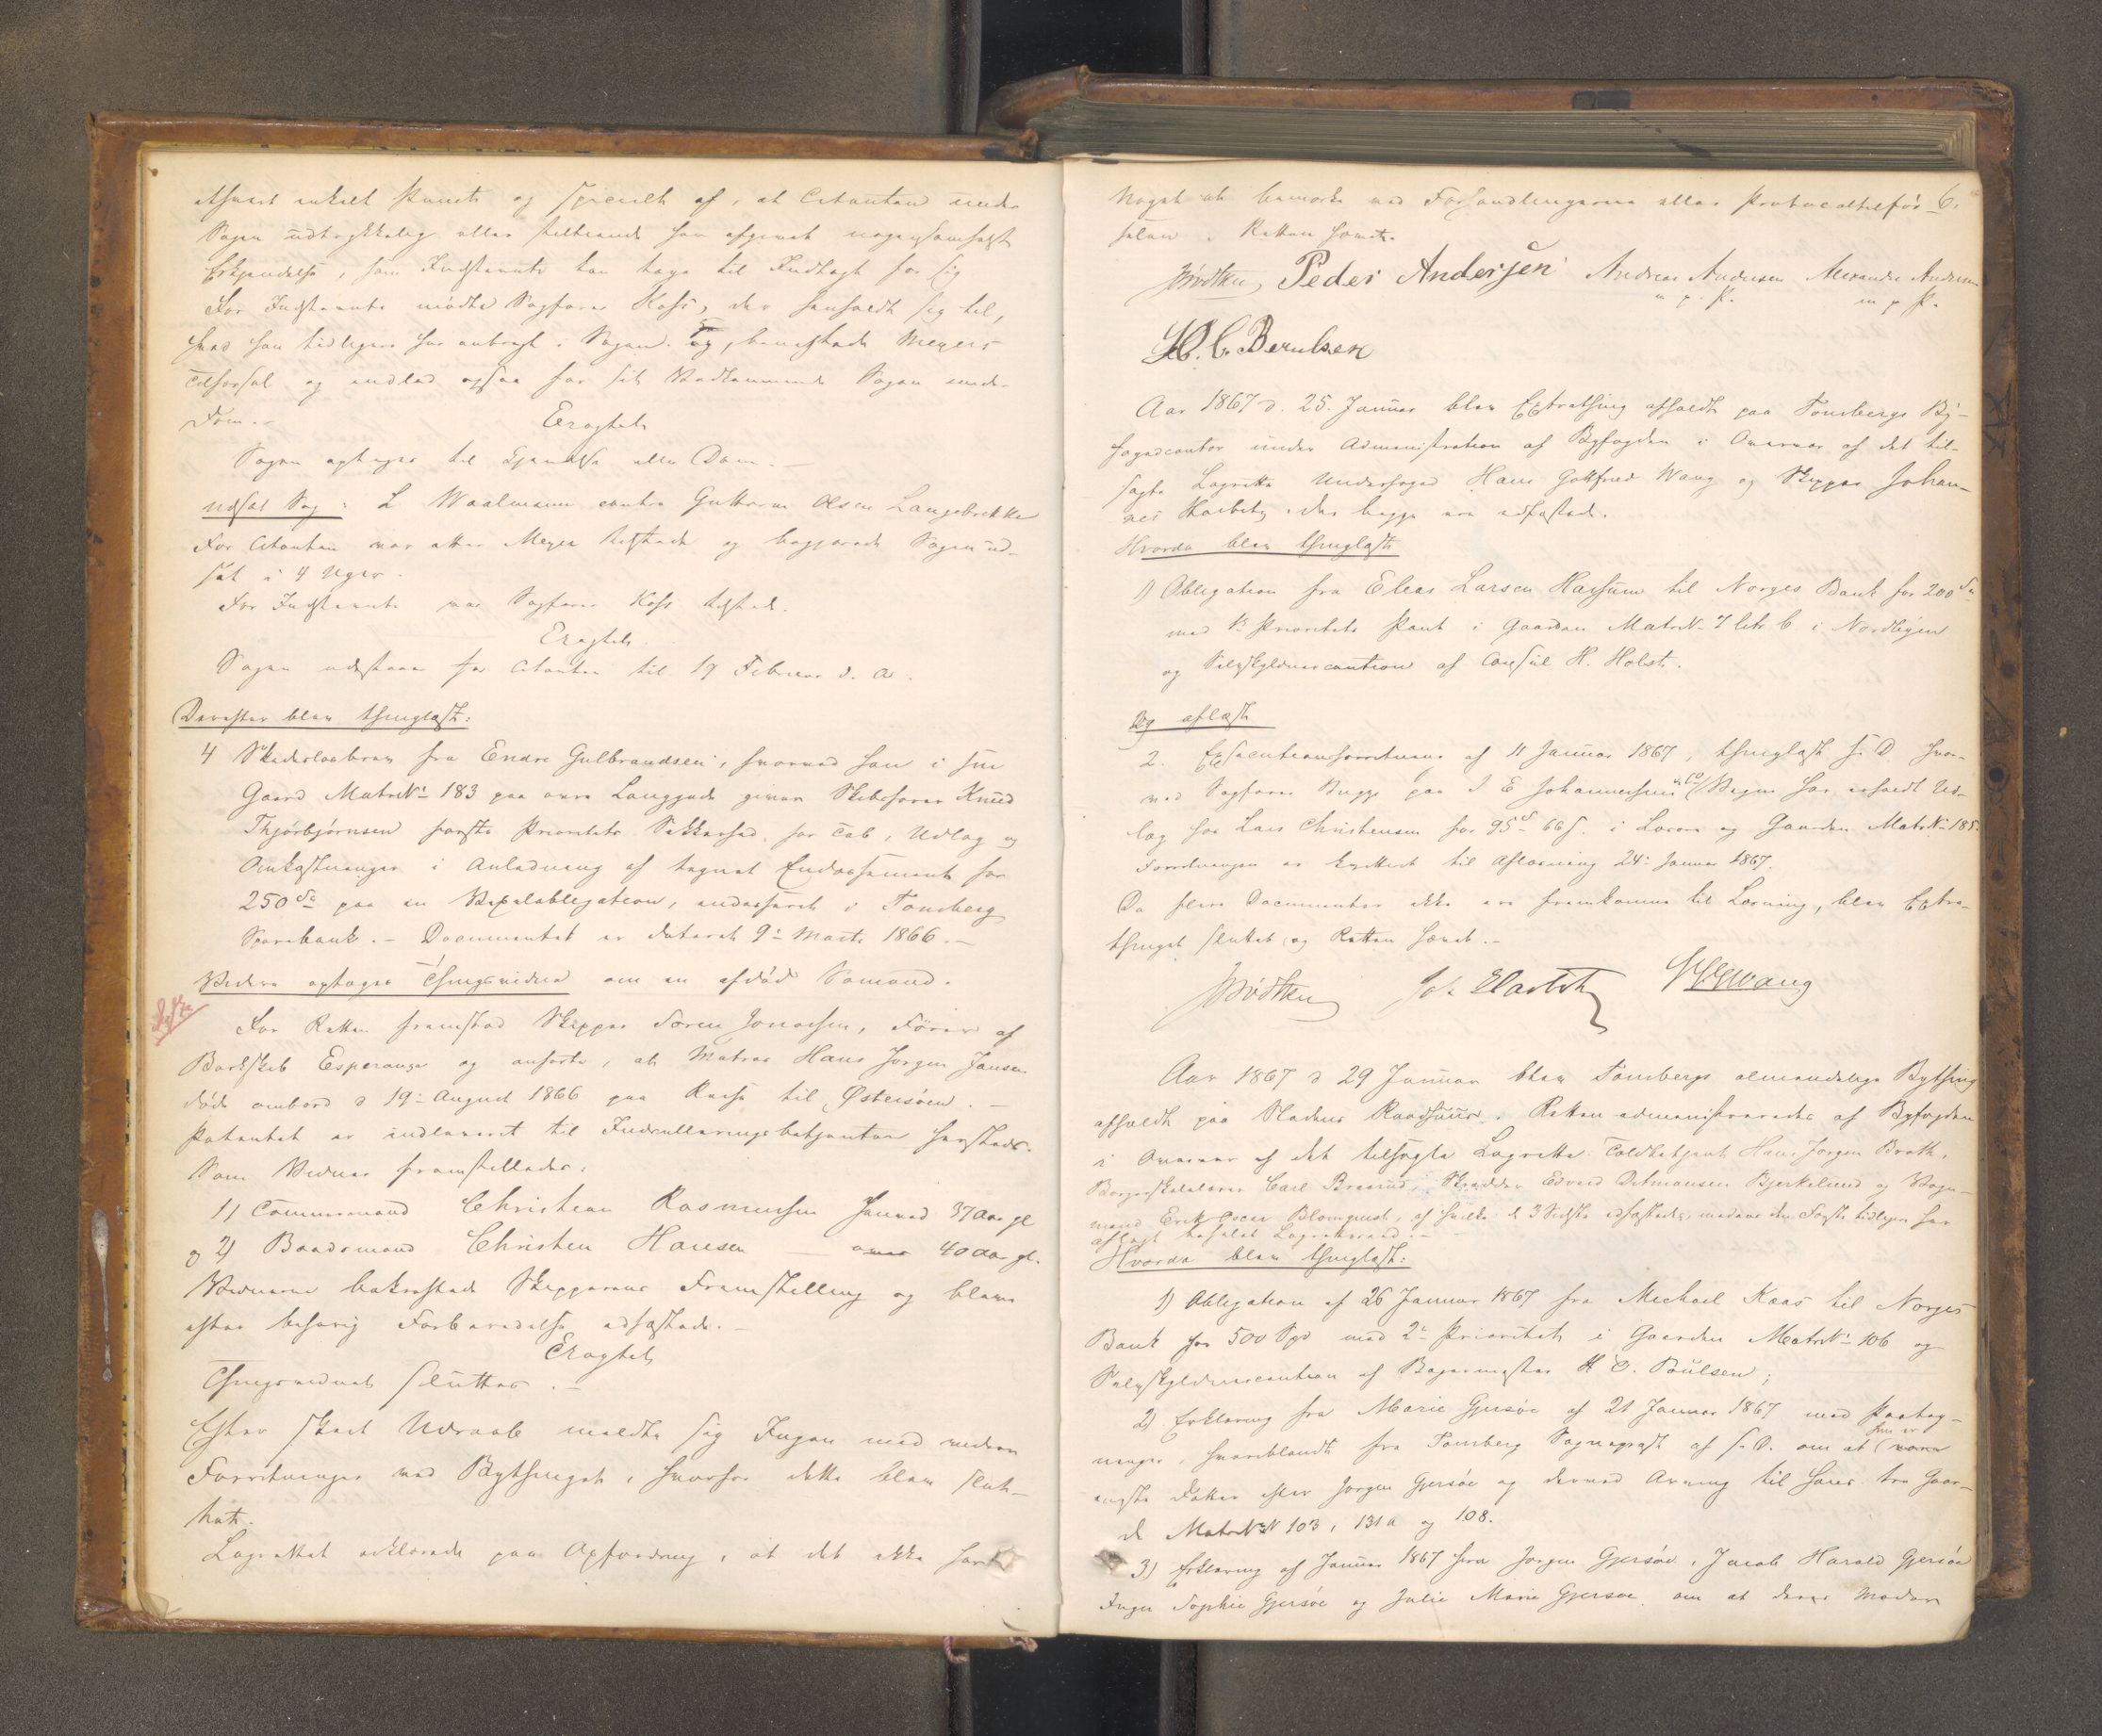 ethvert enkelt Punct og specielt af, at Citanten under
Sagen udtrykkelig eller stiltiende har afgivet nogensomhelst
Erkjendelse, som Indstevnte kan tage til Indtægt for sig
For Indstevnte mødte Sagfører Koss, der henholdt sig til,
hvad han tidligere har anbragt i Sagen, og benegtede Meyers
Tilførsel og indlod ogsaa for sit Vedkommende Sagen under
Dom.-
Eragtet
Sagen optages til Kjendelse eller Dom.-
Udsat Sag: L Waalmann contra Guttorm Olsen Langebrekke
For Citanten var atter Meyer tilstede og begjærede Sagen ud-
sat i 4 Uger.
For Indstevnte var Sagfører Koss tilstede.
Eragtet.
Sagen udstaaer for Citanten til 19 Februar d. A.
Derefter blev thinglæst:
4 Skadesløsbrev fra Endre Gulbrandsen, hvorved han i sin
Gaard Matr. No 183 paa øvre Langgade giver Skibsfører Knud
Thjørbjørnsen første Prioritets Sikkerhed for Tab, Udlæg og
Omkostninger i Anledning af tegnet Endossement for
250 Sp paa en Vexelobligation, endosseret i Tønsberg
Sparebank.- Documentet er dateret 9de Marts 1866.-
Videre optoges Thingsvidne om en afdød Sømand.
For Retten fremstod Skipper Søren Jonassen, Fører af
Barkskib Esperance og anførte, at Matros Hans Jørgen Jansen
døde ombord d 19de August 1866 paa Reise til Østersøen.-
Patentet er indleveret til Indrulleringsbetjenten herstedet.
Som Vidner fremstilledes:
1) Tømmermand Christian Rasmussen Hannevd 37 Aar gl
og 2) Baadsmand Christen Hansen — 40 Aar gl.
Vidnerne bekræftede Skipperens Fremstilling og bleve
efter behørig Forberedelse edfæstede.-
Eragtet
Thingsvidnet sluttes.-
Efter skeet Udraab meldte sig Ingen med videre
Forretninger ved Bythinget, hvorfor dette blev slut-
tet.
Lagrettet erklærede paa Opfordring, at det ikke havde
Noget at bemærke ved Forhandlingerne eller Protocoltilfør- 6.
selen. Retten hævet.
JBødtker Peder Andersen Andreas Andersen Alexander Andersen
m. p. P. m p P.
H. C. Berntsen
Aar 1867 d. 25. Januar blev Extrathing afholdt paa Tønsbergs By-
fogedcontor under Administration af Byfogden i Overvær af det til-
sagte Lagrette Underfoged Hans Gottfried Wang og Skipper Johan-
nes Harbitz, der begge ere edfæstede.
Hvorda blev thinglæst
1) Obligation fra Elias Larsen Haslum til Norges Bank for 200 Sp
med 1ste Prioritets Pant i Gaarden Matr. No 7 litr b i Nordbyen
og Selvskyldnercaution af Consul H. Holst.
Og aflæst
2. Executionsforretning af 11 Januar 1867, thinglæst s. D. hvor-
ved Sagfører Bugge paa J E Johannessens & Co Vegne har erholdt Ud-
læg hos Lars Christensen for 95 Sp 66 s. i Løsøre og Gaarden Matr. No 185.
Forretningen er kvitteret til Aflæsning 24de Januar 1867.
Da flere Documenter ikke ere fremkomne til Læsning, blev Extra-
thinget sluttet, og Retten hævet.-
JBødtker Joh. Harbitz HGWang
Aar 1867 d 29 Januar blev Tønsbergs almindelige Bything
afholdt paa Stadens Raadhuus. Retten administreredes af Byfogden
i Overvær af det tilsagte Lagrette Toldbetjent Hans Jørgen Brath,
Borgerskolelærer Carl Brærud, Skrædder Edvard Ditmansen Bjerkelund og Vogn-
mand Erik Oscar Blomqvist, af hvilke de 3 Sidste edfæstedes, medens den Første tidligere har
aflagt befalet Lagrettesed.-
Hvorda blev thinglæst:
1) Obligation af 26 Januar 1867 fra Michael Kaas til Norges
Bank for 500 Spd med 2den Prioritet i Gaarden Matr. No 106 og
Selvskyldnercaution af Bagermester H O. Poulsen;
2) Erklæring fra Marie Gjersøe af 21 Januar 1867 med Paateg-
ninger, hvoriblandt fra Tønsberg Sogneprest af s. D. om at hun er
eneste Datter efter Jørgen Gjersøe og derved Arving til hans tre Gaar-
de Matr. No 103, 131a og 108.
3) Erklæring af Januar 1867 fra Jørgen Gjersøe, Jacob Harald Gjersøe
Inger Sophie Gjersøe og Julie Marie Gjersøe om at deres Moder